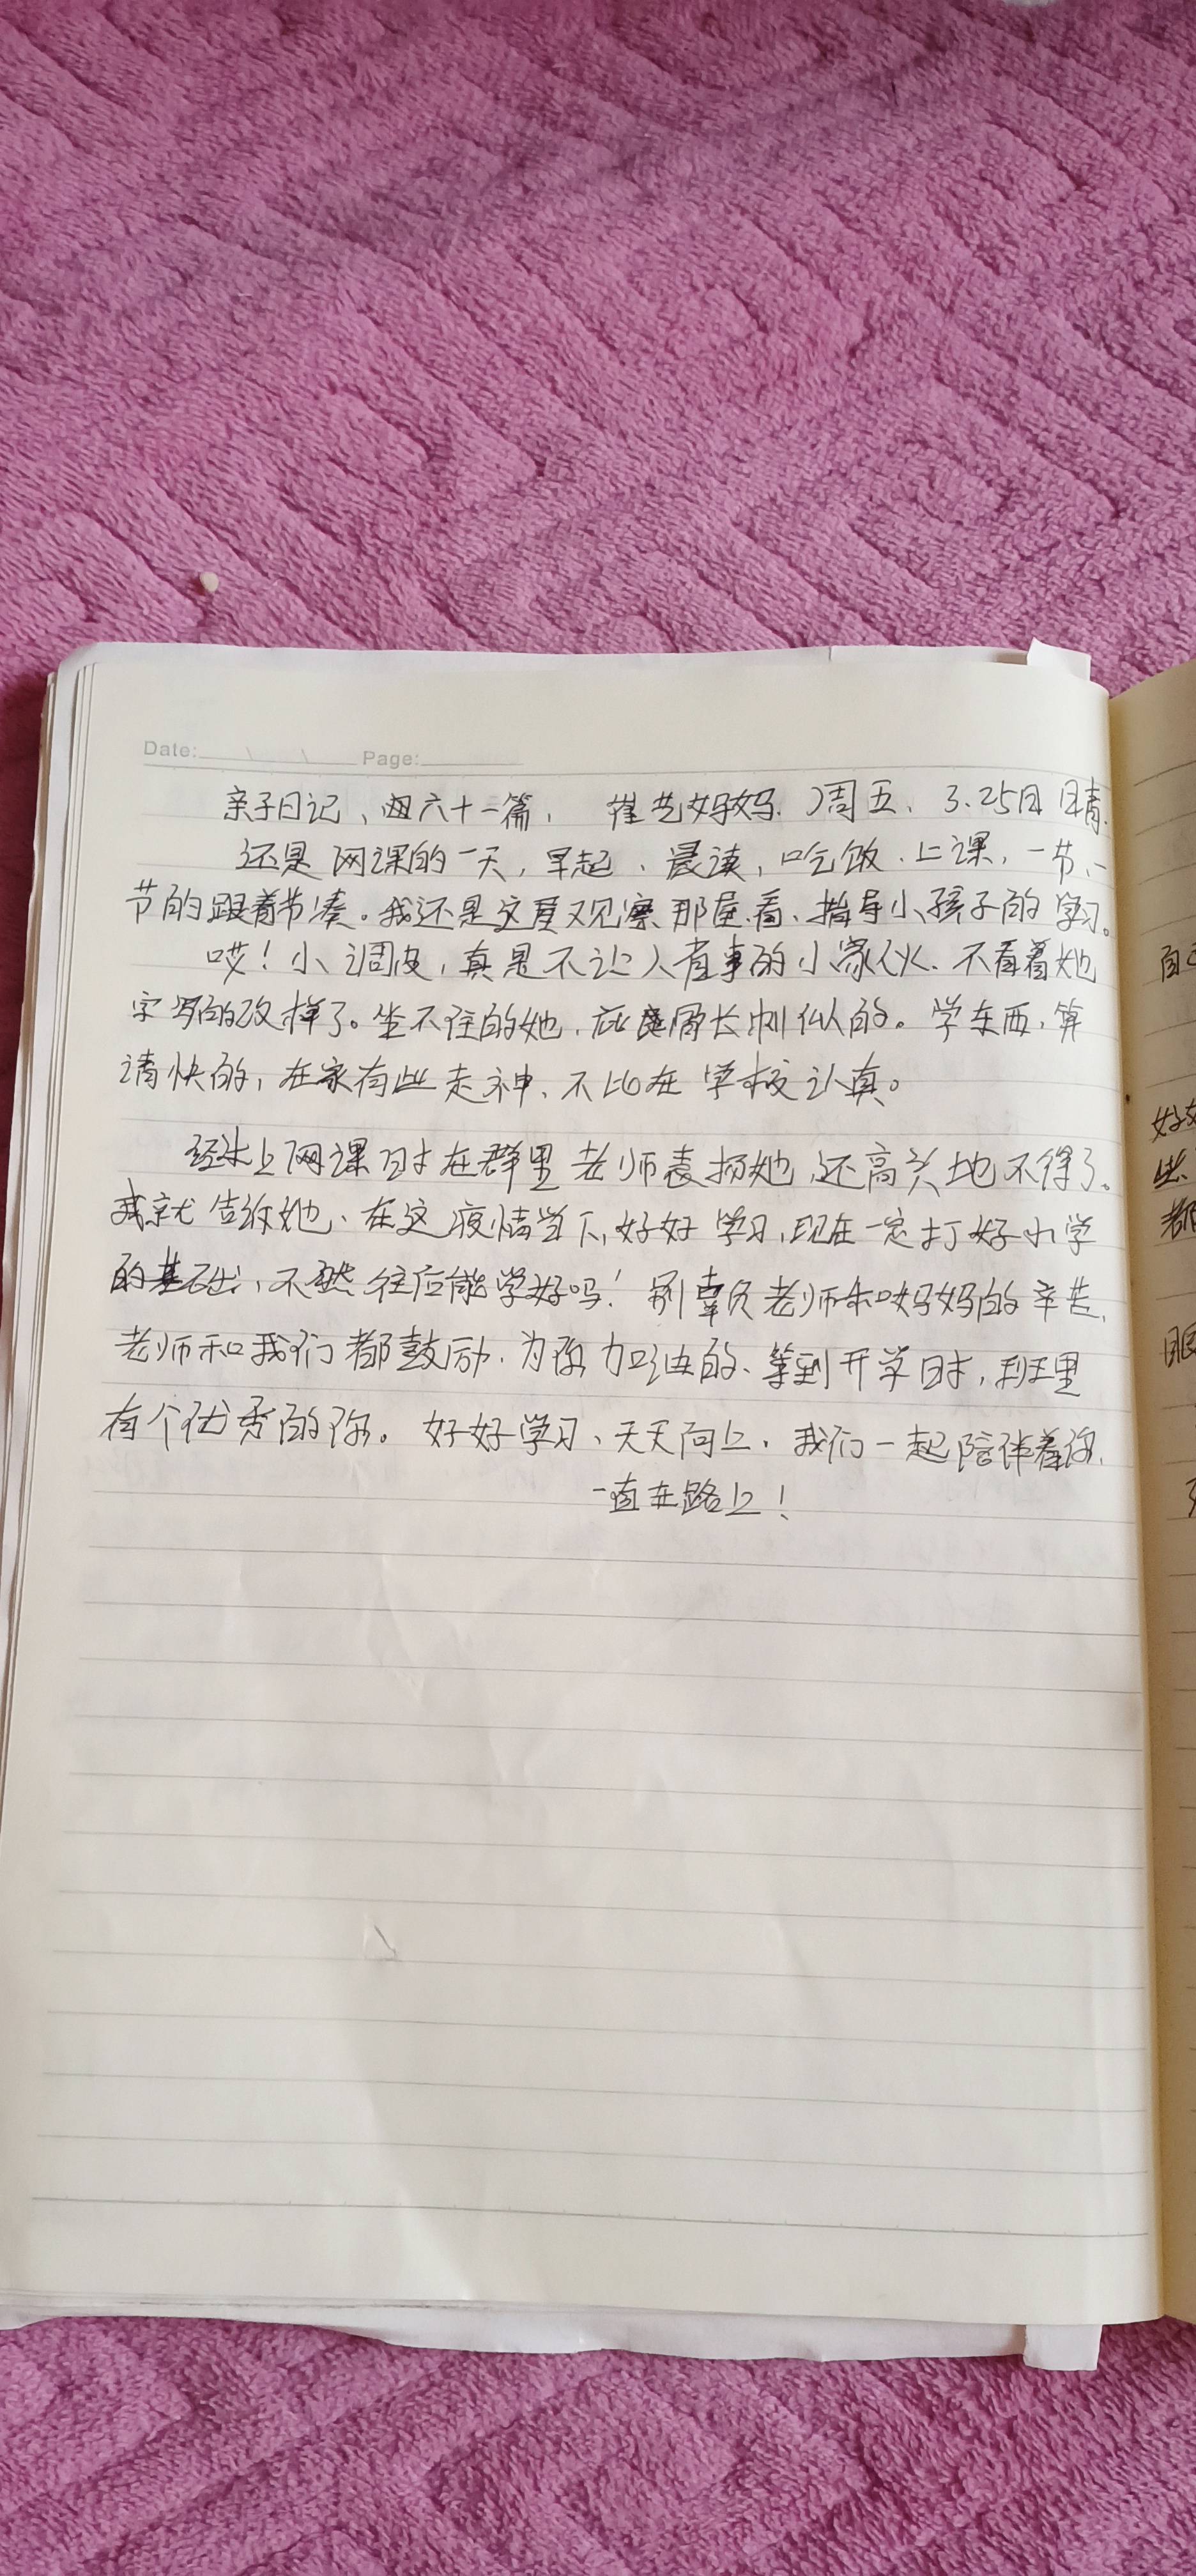 Date: \ \ Page:
亲子日记、囬六十一篇, 崔艺妈妈. 周五、3.25日 晴.
还是网课的一天,早起、晨读,吃饭、上课,一节、一
节的跟着节凑。我还是这屋又观察那屋看、指导小孩子的学习。
哎!小调皮,真是不让人省事的小家伙、不看着她
字写的改样了。坐不住的她,屁股长刺似的。学东西,算
请快的,在家有些走神、不比在学校认真。
经常上网课时在群里老师表扬她,还高兴地不得了。
我就告给她、在这疫情当下,好好学习,现在一定打好小学
的基础,不然往后能学好吗!别辜负老师和妈妈的辛苦,
老师和我们都鼓励、为你加油的、等到开学时,班里
有个优秀的你。好好学习、天天向上、我们一起陪伴着你.
一直在路上!
自己
好好
些
都
眼